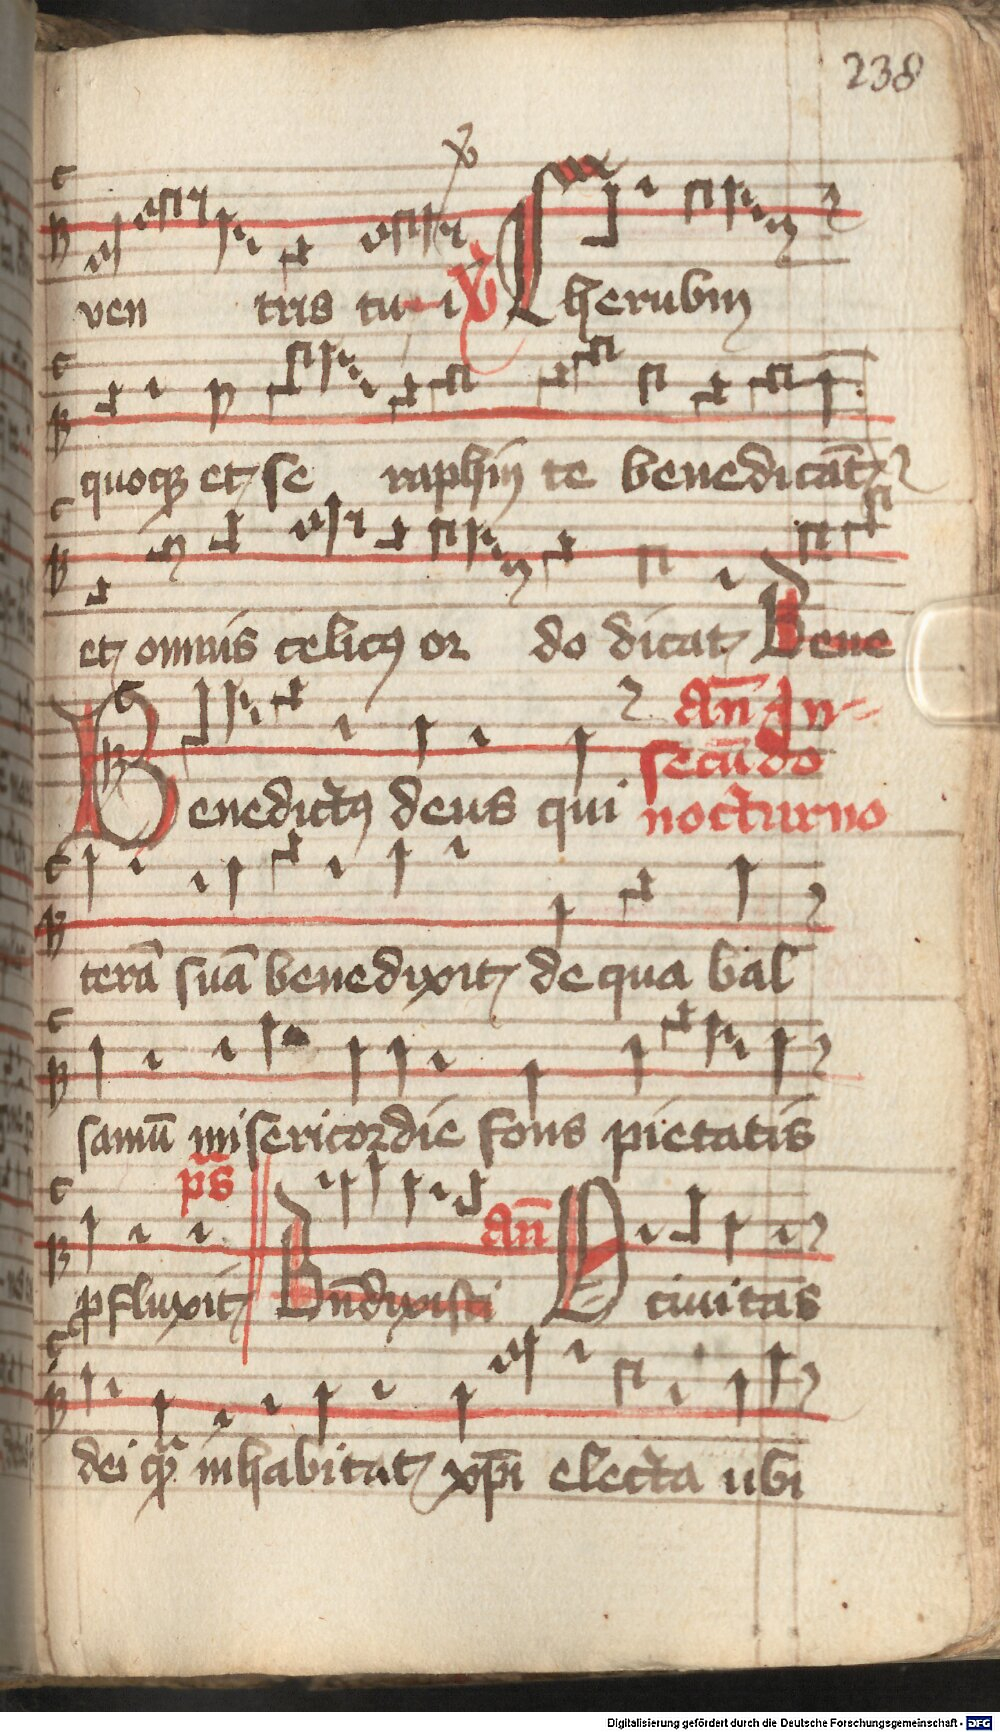 238
ven tris tu i V Cherubin
quoqȝ et se raphin te benedicāt
et omnis celicꝰ or do dicat Bene
Benedictꝰ deus qui an̄ In
secūdo
nocturno
terā suā benedixit de qua bal
samū misericordie fons pietatis
p̄s an̄
ꝓfluxit Bn̄dixisti O ciuitas
dei qȝ inhabitat xp̄i electa ubi
Digitalisierung gefördert durch die Deutsche Forschungsgemeinschaft - DFG